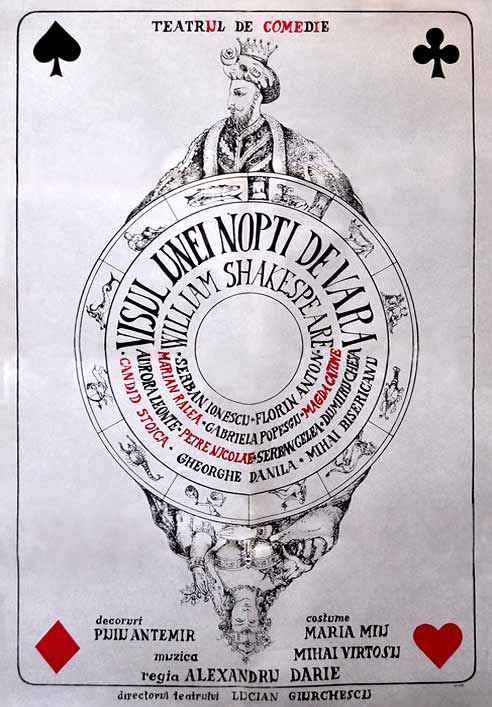 TEATRUL DE COMEDIE
VISUL UNEI NOPTI DE VARA
WILLIAM SHAKESPEARE
· SERBAN IONESCU · FLORIN ANTON ·
MARIAN RALEA · GABRIELA POPESCU · MAGDA CATONE
· AURORA LEONTE · PETRE NICOLAE · SERBAN CELEA · DUMITRU CHESA
· CANDID STOICA · GHEORGHE DANILA · MIHAI BISERICANU
decoruri
PUIU ANTEMIR
costume
MARIA MIU
muzica MIHAI VIRTOSU
regia ALEXANDRU DARIE
directorul teatrului LUCIAN GIURCHESCU